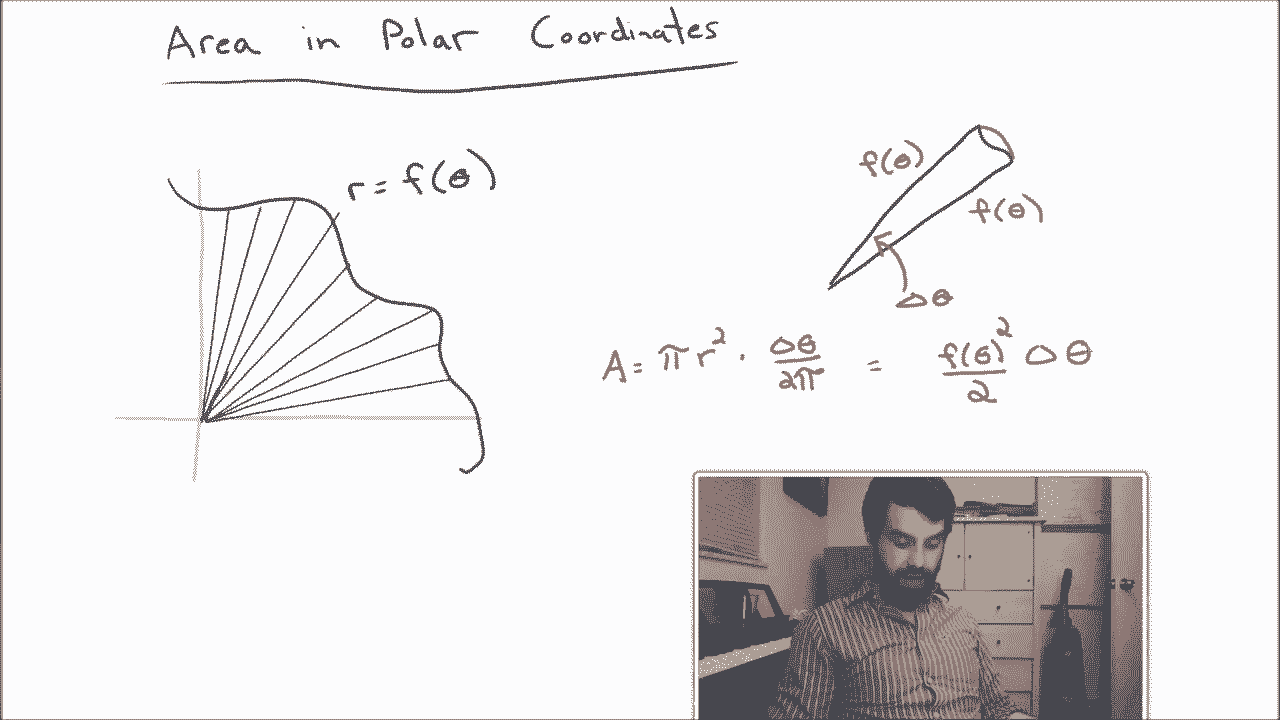 Area in Polar Coordinates
r = f(θ)
f(θ)
f(θ)
Δθ
A = πr² · Δθ/2π = f(θ)²/2 Δθ